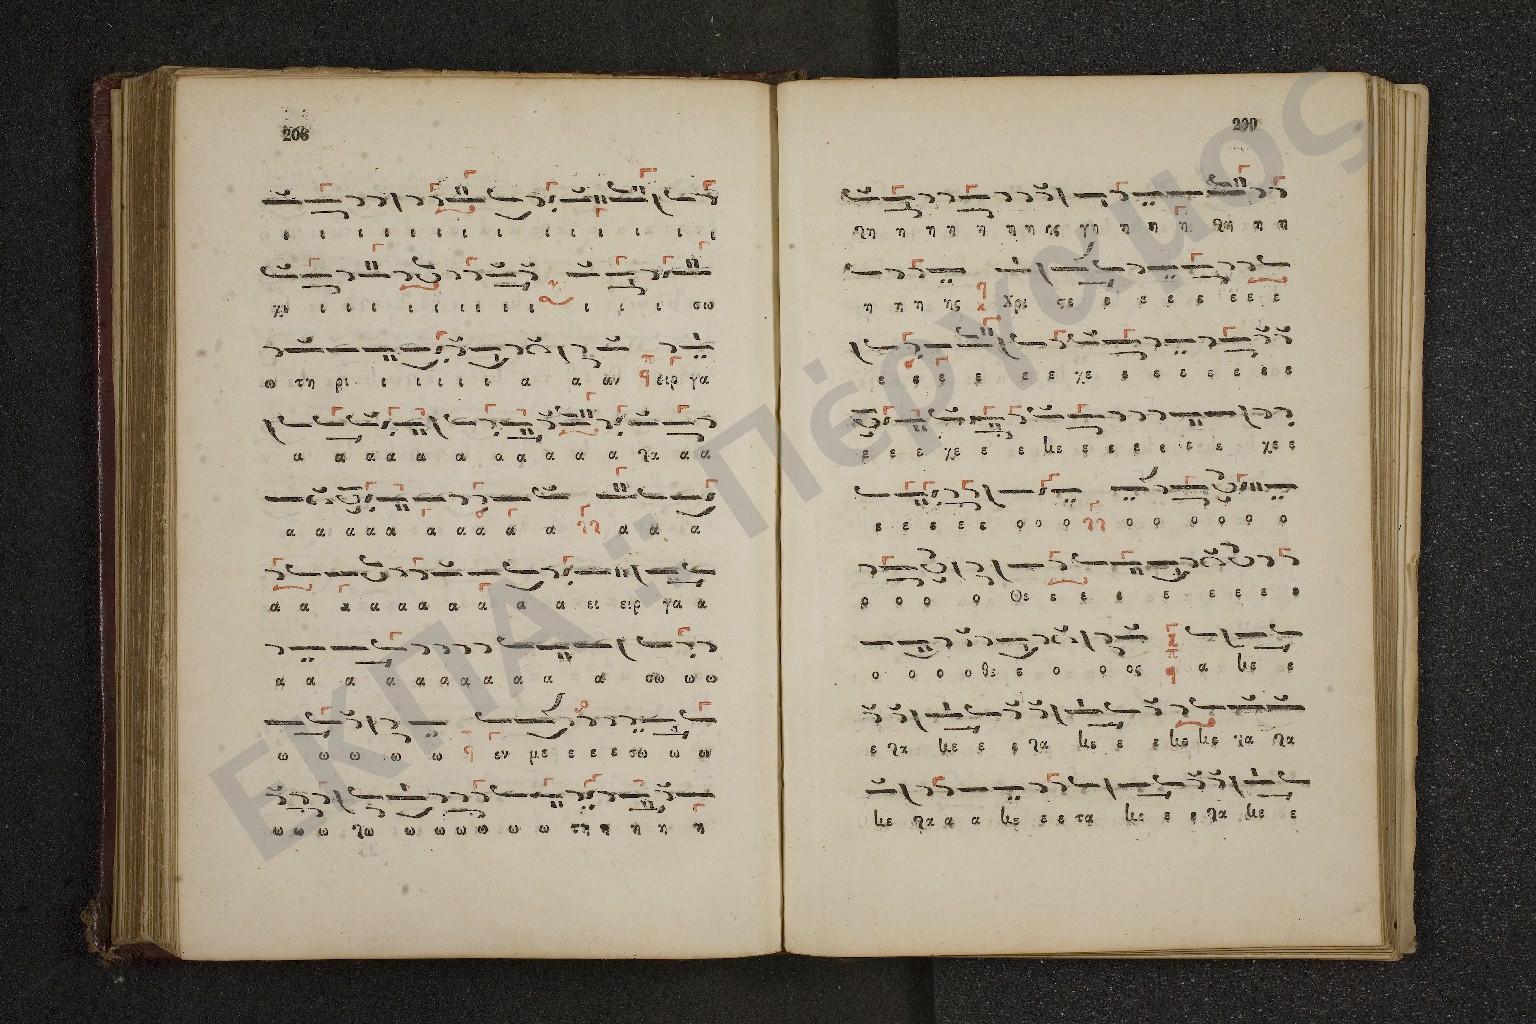 208
ι ι ι ι ι ι ι ι ι ι ι ι ι ι ι
χι ι ι ι ι ι ι ι ι ι ι ι σω
ω τη ρι ι ι ι ι ι α α αν ειρ γα
α α α α α α α α α α α λα α α
α α α α α α α α α α α α α α
α α α α α α α α α α ει ειρ γα α
α α α α α α α α α α α σω ω ω
ω ω ω ω ω εν με ε ε ε σω ω ω
ω ω ω λω ω ω ω ω ω ω τη η η η η
209
λη η η η η η η ης γη η η η λη η η
η η η ης Χρι σε ε ε ε ε ε ε ε
ε ε ε ε ε ε χε ε ε ε ε ε ε ε
ε ε ε χε ε ε κε ε ε ε ε ε ε χε ε
ε ε ε ε ε ο ο ο ο ο ο ο ο ο
ο ο ο ο Θε ε ε ε ε ε ε ε ε ε
ο ο ο ο θε ε ο ο ος α κε ε
ε λα κε ε ε λα κε ε ε κε κε λα
κε λα α α κε ε ε τα κε ε ε λα κε ε
ΕΚΠΑ :: Πέργαμος